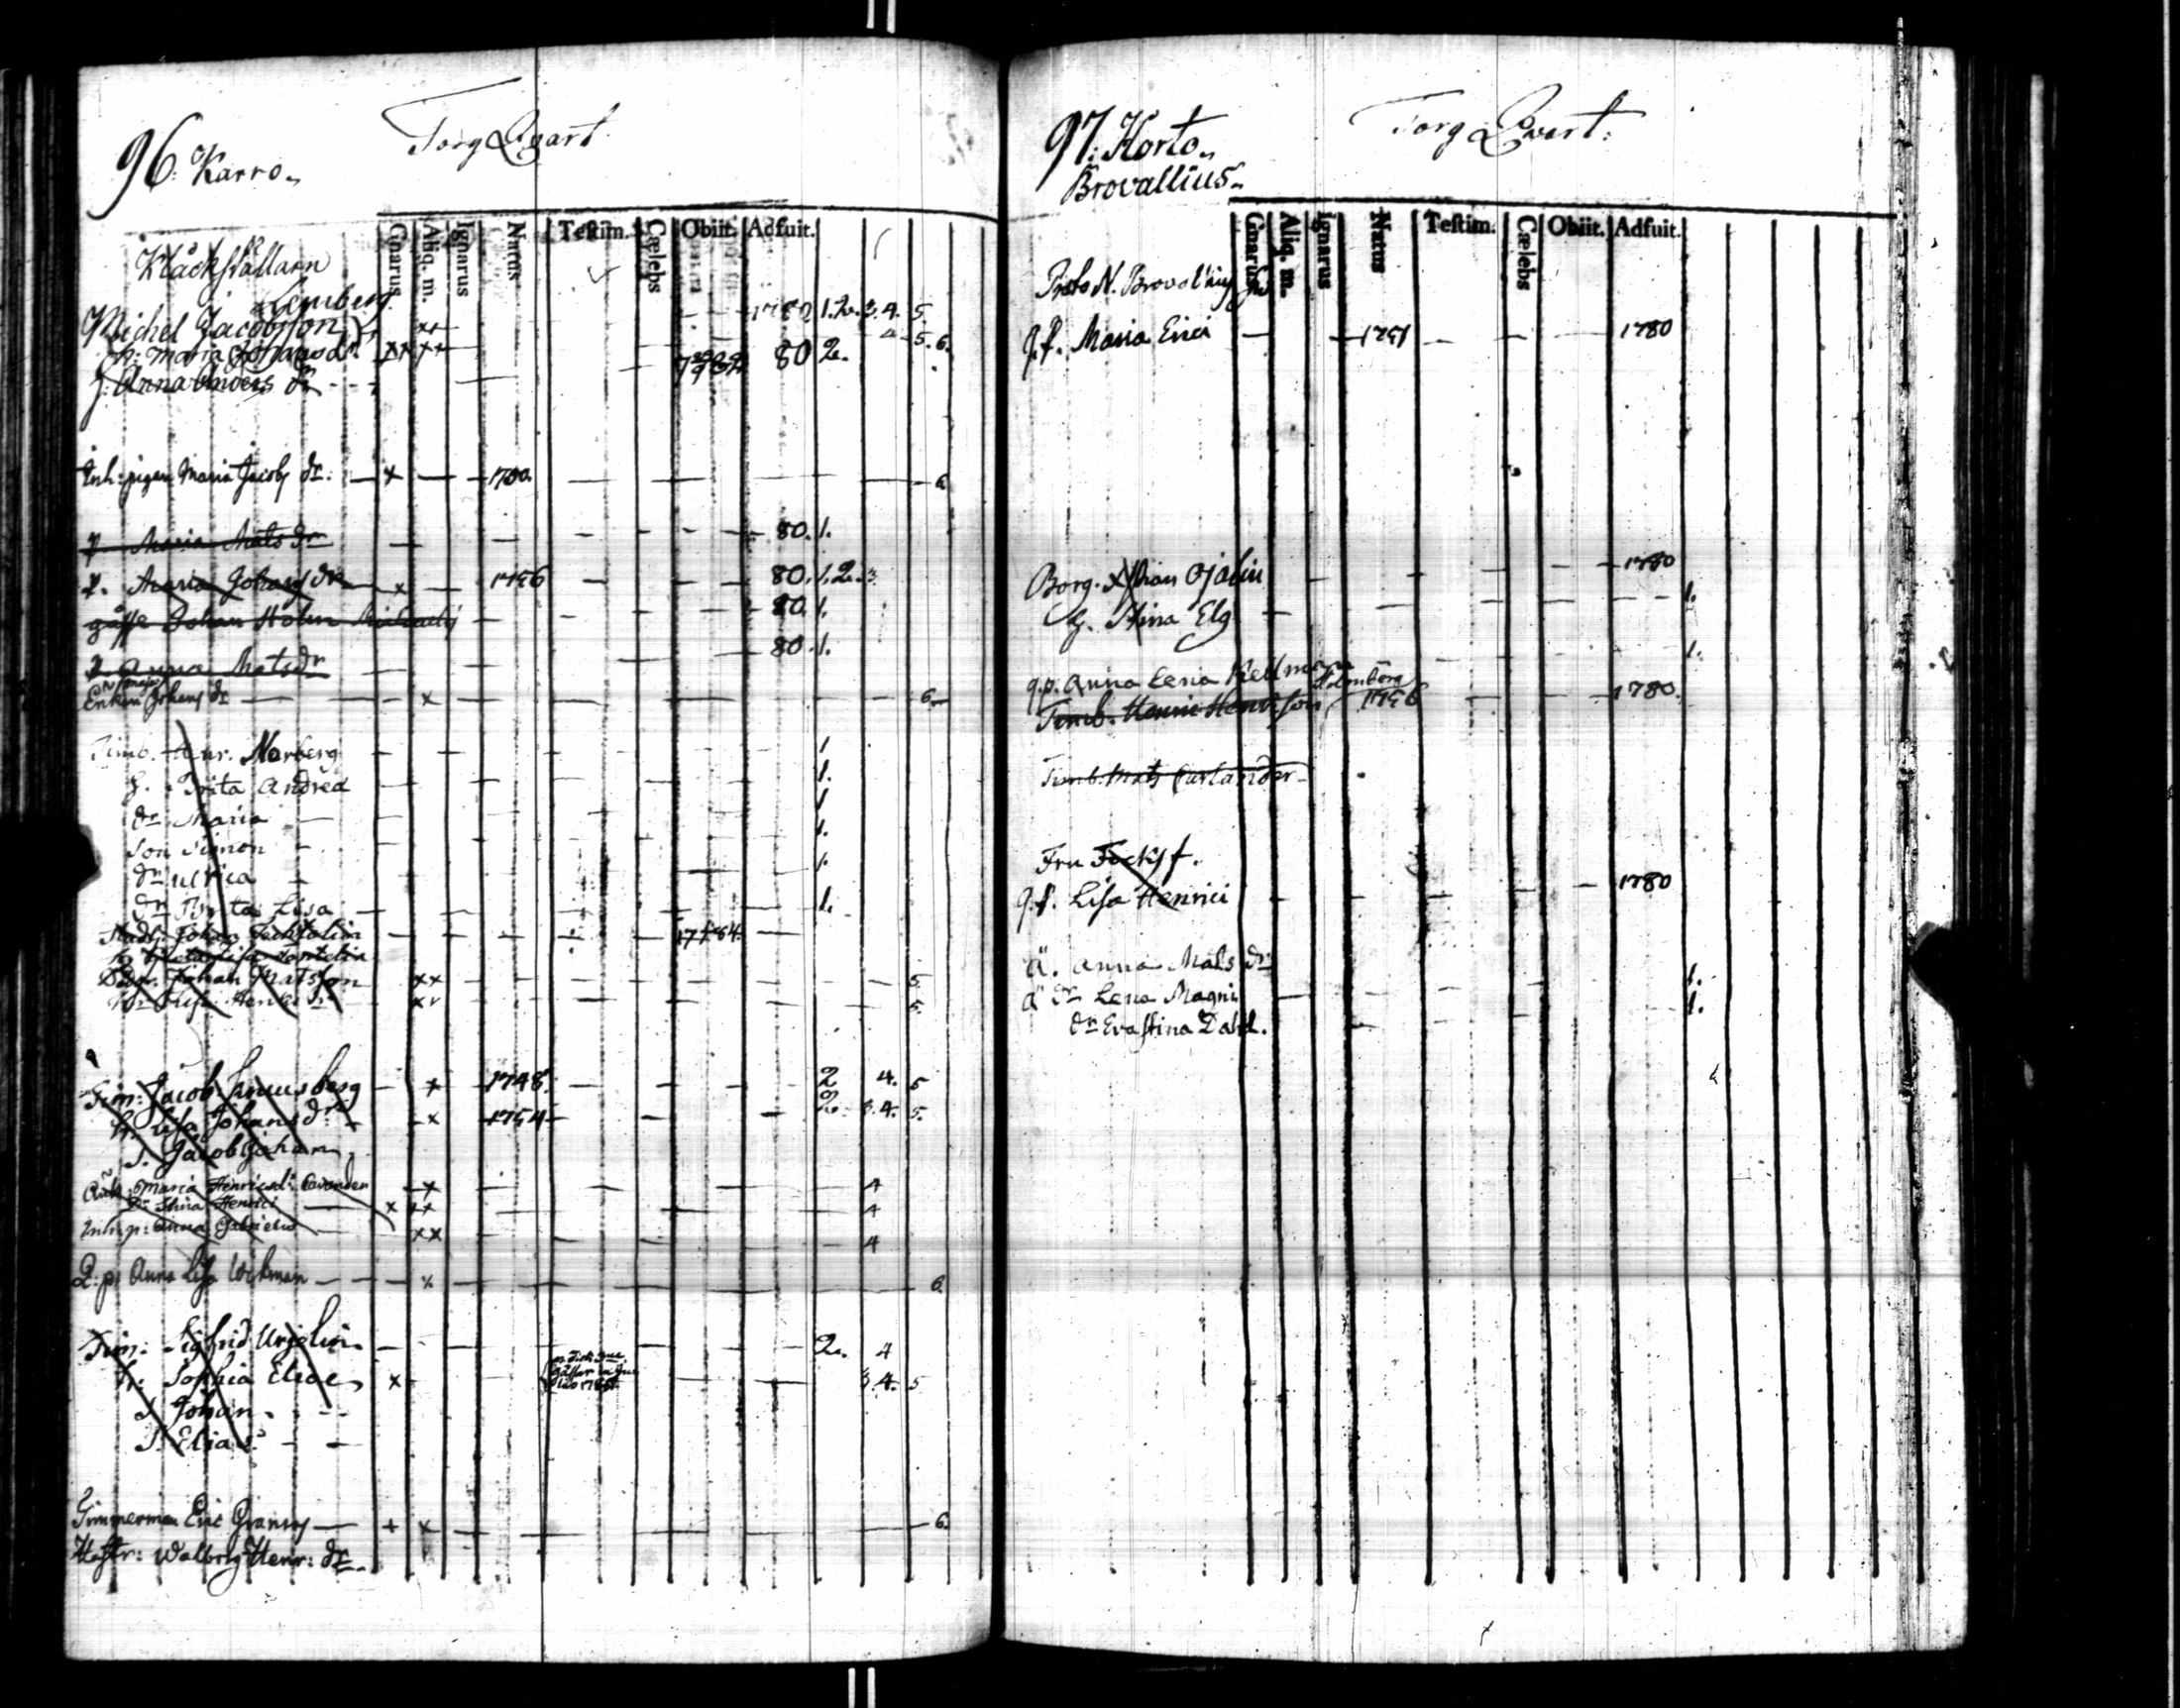 96. Karro.
Torg Qvart.
Gnarus Aliq. m. Ignarus Natus Testim. Cælebs Obiit. Adfuit.
Klåckställarn
Lemberg
Michel Jacobsson ++ 1780 1. 2. 3. 4. 5.
h: Maria Johansdr ×× ++ 4 5. 6.
h. Anna Anders dr 80 2.
Inh: pigan Maria Jacobs dr: × 1760. 6
p Maria Mats dr 80. 1.
p. Maria Johans dr × 1756 80. 1. 2. 3
gåsse Johan Holm Michaelis 80. 1.
p Anna Matsdr 80. 1.
Enkan Johans dr × 6
Timb. Henr. Norberg 1
h. Brita Andreæ 1.
dr Maria 1
Son Simon 1.
dr Ulrica 1.
dr Brita Lisa 1.
Johan 1784.
Johan Matsson ×× 5.
Lisa Henr. dr 5.
Tim: Jacob Linnusberg × 1748. 2 4. 5
h. Lisa Johans dr × 1754 2. 3. 4. 5.
S. Jacob Johan
Maria Henricsdr × 4
dr Stina Henrici × ×× 4
Inh. p: Anna Gabriels ×× 4
Q: p. Anna Lisa Wikman × 6.
Tim: Sigfrid Urjelin 2. 4
h: Sophia Eliæ × 3. 4. 5
S Johan
S. Elias
Timmerman Eric Granroos + × 6.
Hustr: Walborg Henr: dr
97: Korto.
Brovallius.
Torg Qvart:
Gnarus Aliq. m. Ignarus Natus Testim. Cælebs Obiit. Adfuit.
N. Brovallius
q.p. Maria Erici 1751 1780
Borg. Ojalin 1780
h. Stina Elg 1.
q.p. Anna Lena Kellman 1.
Holmberg
Timb. Henric Henricsson 1756 1780.
Timb. Mats Curlander
Fru
q.p. Lisa Henrici 1780
Ä. Anna Mats dr
Ä dr Lena Magni 1.
dr Eva Stina Dahl. 1.